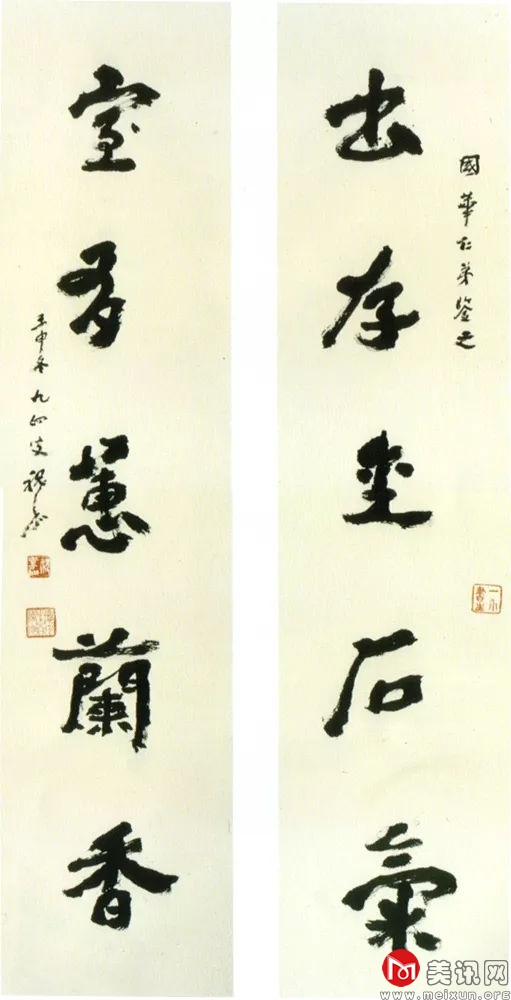 國華仁弟鑒之
出存金石氣
室有蕙蘭香
壬申冬九四叟祝嘉
美讯网
www.meixun.org